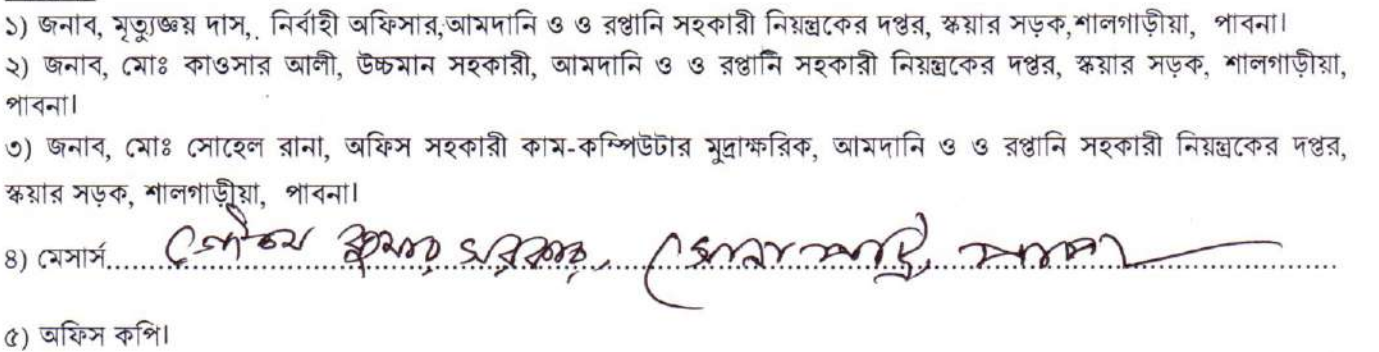 ১) জনাব, মৃত্যুঞ্জয় দাস,. নির্বাহী অফিসার,আমদানি ও ও রপ্তানি সহকারী নিয়ন্ত্রকের দপ্তর, স্কয়ার সড়ক,শালগাড়ীয়া, পাবনা।
২) জনাব, মোঃ কাওসার আলী, উচ্চমান সহকারী, আমদানি ও ও রপ্তানি সহকারী নিয়ন্ত্রকের দপ্তর, স্কয়ার সড়ক, শালগাড়ীয়া,
পাবনা।
৩) জনাব, মোঃ সোহেল রানা, অফিস সহকারী কাম-কম্পিউটার মুদ্রাক্ষরিক, আমদানি ও ও রপ্তানি সহকারী নিয়ন্ত্রকের দপ্তর,
স্কয়ার সড়ক, শালগাড়ীয়া, পাবনা।
৪) মেসার্স.... গৌতম কুমার সরকার, সোনা পট্টি,
৫) অফিস কপি।